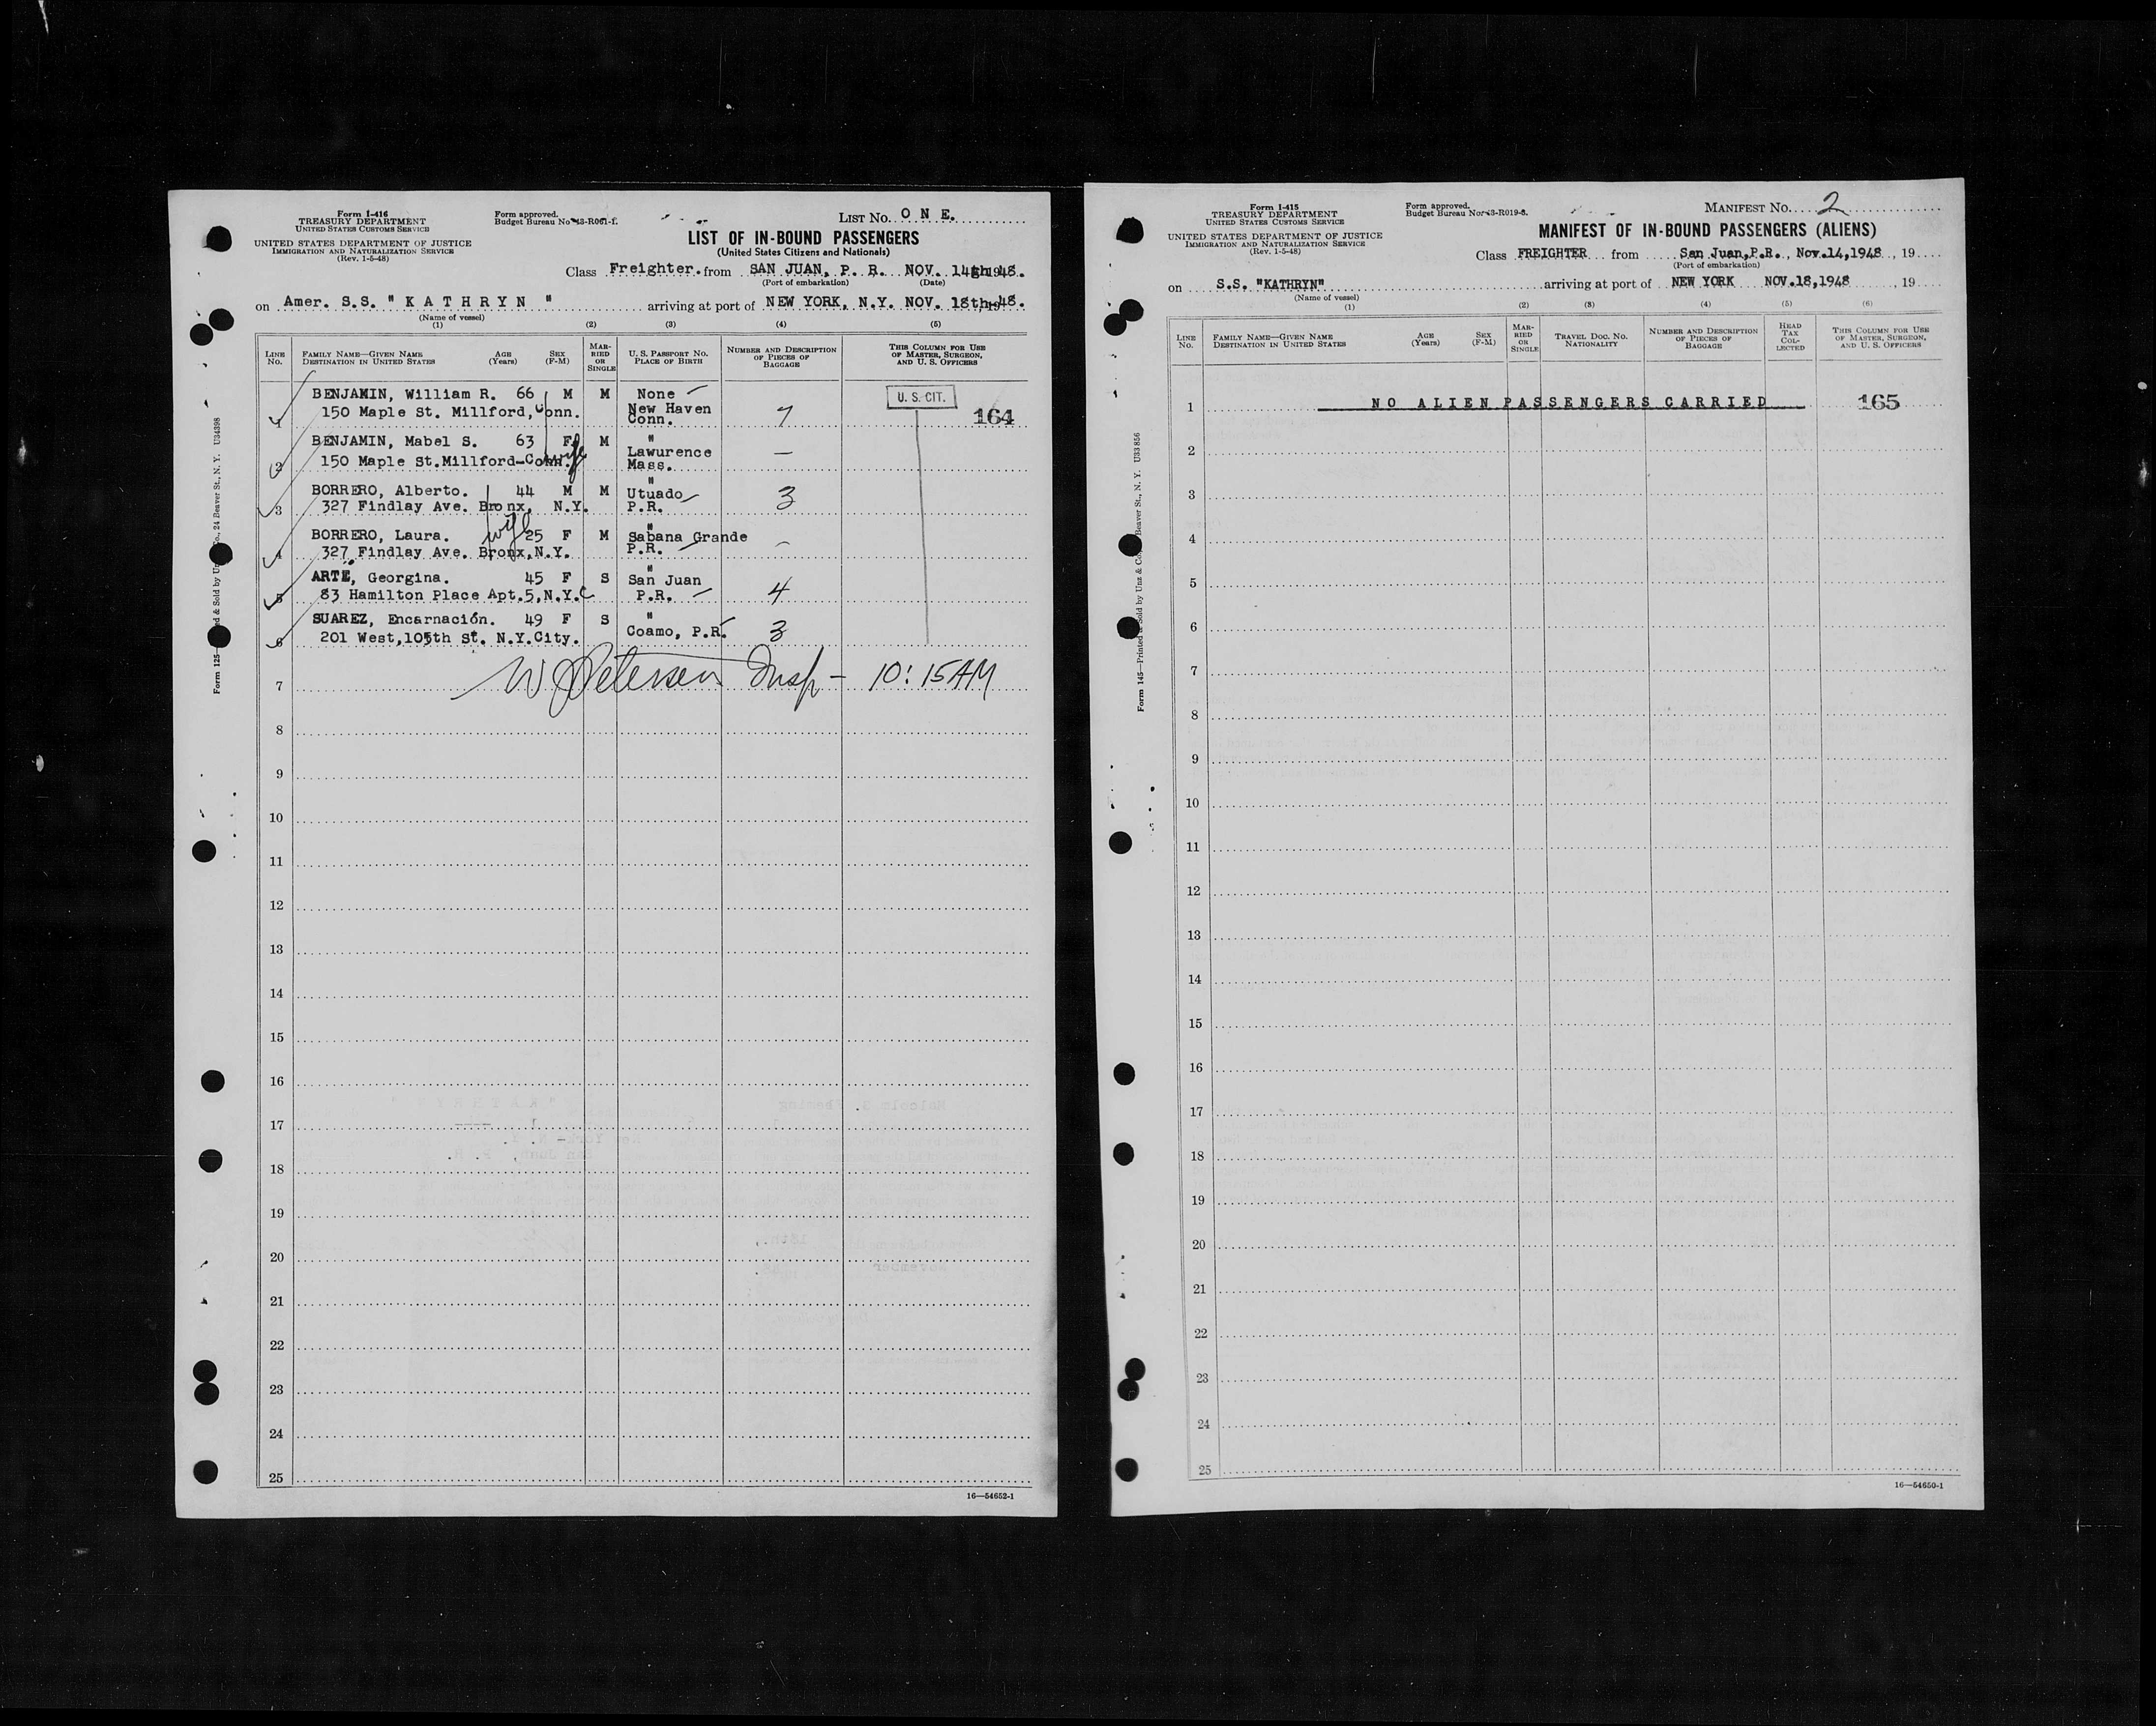 Form I-416
TREASURY DEPARTMENT
UNITED STATES CUSTOMS SERVICE
UNITED STATES DEPARTMENT OF JUSTICE
IMMIGRATION AND NATURALIZATION SERVICE
(Rev. 1-5-48)
Form approved.
Budget Bureau No. 43-R061-1.
LIST NO. O N E.
LIST OF IN-BOUND PASSENGERS
(United States Citizens and Nationals)
Class Freighter. from SAN JUAN, P. R. NOV. 14th 1948.
(Port of embarkation) (Date)
on Amer. S.S. " K A T H R Y N " arriving at port of NEW YORK, N.Y. NOV. 18th, 1948.
(Name of vessel)
(1) (2) (3) (4) (5)
LINE NO. FAMILY NAME—GIVEN NAME DESTINATION IN UNITED STATES AGE (Years) SEX (F-M) MARRIED OR SINGLE U. S. PASSPORT NO. PLACE OF BIRTH NUMBER AND DESCRIPTION OF PIECES OF BAGGAGE THIS COLUMN FOR USE OF MASTER, SURGEON, AND U. S. OFFICERS
BENJAMIN, William R. 66 M M None U. S. CIT.
1 150 Maple St. Millford, Conn. New Haven Conn. 7 164
BENJAMIN, Mabel S. 63 F M "
2 150 Maple St.Millford-Conn. wife Lawurence Mass. —
BORRERO, Alberto. 44 M M "
3 327 Findlay Ave. Bronx, N.Y. Utuado P.R. 3
BORRERO, Laura. wife 25 F M "
4 327 Findlay Ave. Bronx,N.Y. Sabana Grande P.R. –
ARTË, Georgina. 45 F S "
5 83 Hamilton Place Apt.5,N.Y.C San Juan P.R. 4
SUAREZ, Encarnación. 49 F S "
6 201 West,105th St. N.Y.City. Coamo, P.R. 3
7 W Petersen Insp – 10:15 AM
8
9
10
11
12
13
14
15
16
17
18
19
20
21
22
23
24
25
16—54652-1
Form I-415
TREASURY DEPARTMENT
UNITED STATES CUSTOMS SERVICE
UNITED STATES DEPARTMENT OF JUSTICE
IMMIGRATION AND NATURALIZATION SERVICE
(Rev. 1-5-48)
Form approved.
Budget Bureau No. 43-R019-8.
MANIFEST NO. 2
MANIFEST OF IN-BOUND PASSENGERS (ALIENS)
Class FREIGHTER from San Juan,P.R., Nov.14,1948, 19
(Port of embarkation)
on S.S. "KATHRYN" arriving at port of NEW YORK NOV.18,1948 19
(Name of vessel)
(1) (2) (3) (4) (5) (6)
LINE NO. FAMILY NAME—GIVEN NAME DESTINATION IN UNITED STATES AGE (Years) SEX (F-M) MARRIED OR SINGLE TRAVEL DOC. NO. NATIONALITY NUMBER AND DESCRIPTION OF PIECES OF BAGGAGE HEAD TAX COLLECTED THIS COLUMN FOR USE OF MASTER, SURGEON, AND U. S. OFFICERS
1 NO ALIEN PASSENGERS CARRIED 165
2
3
4
5
6
7
8
9
10
11
12
13
14
15
16
17
18
19
20
21
22
23
24
25
16—54650-1